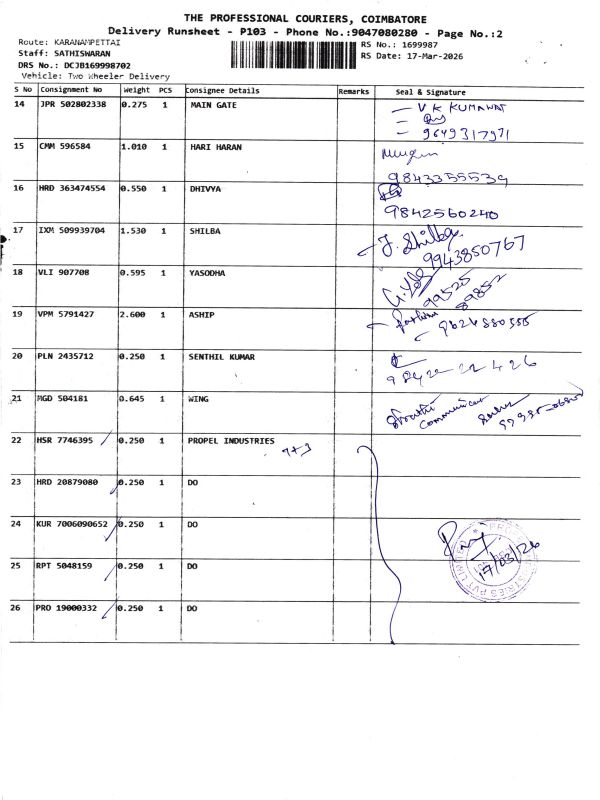 THE PROFESSIONAL COURIERS, COIMBATORE
Delivery Runsheet - P103 - Phone No.:9047080280 - Page No.:2
Route: KARANAMPETTAI
Staff: SATHISWARAN
DRS No.: DCJB169998702
Vehicle: Two Wheeler Delivery
RS No.: 1699987
RS Date: 17-Mar-2026
S No Consignment No Weight PCS Consignee Details Remarks Seal & Signature
14 JPR 502802338 0.275 1 MAIN GATE
- V K KUMAWAT
- 9649317971
15 CMM 596584 1.010 1 HARI HARAN
9843355539
16 HRD 363474554 0.550 1 DHIVYA
9842560240
17 IXM 509939704 1.530 1 SHILBA
J. Shilba
9943850767
18 VLI 907708 0.595 1 YASODHA
99525
89852
19 VPM 5791427 2.600 1 ASHIP
20 PLN 2435712 0.250 1 SENTHIL KUMAR
21 MGD 504181 0.645 1 WING
22 HSR 7746395 0.250 1 PROPEL INDUSTRIES
23 HRD 20879080 0.250 1 DO
24 KUR 7006090652 0.250 1 DO
17/03/26
25 RPT 5048159 0.250 1 DO
26 PRO 19000332 0.250 1 DO